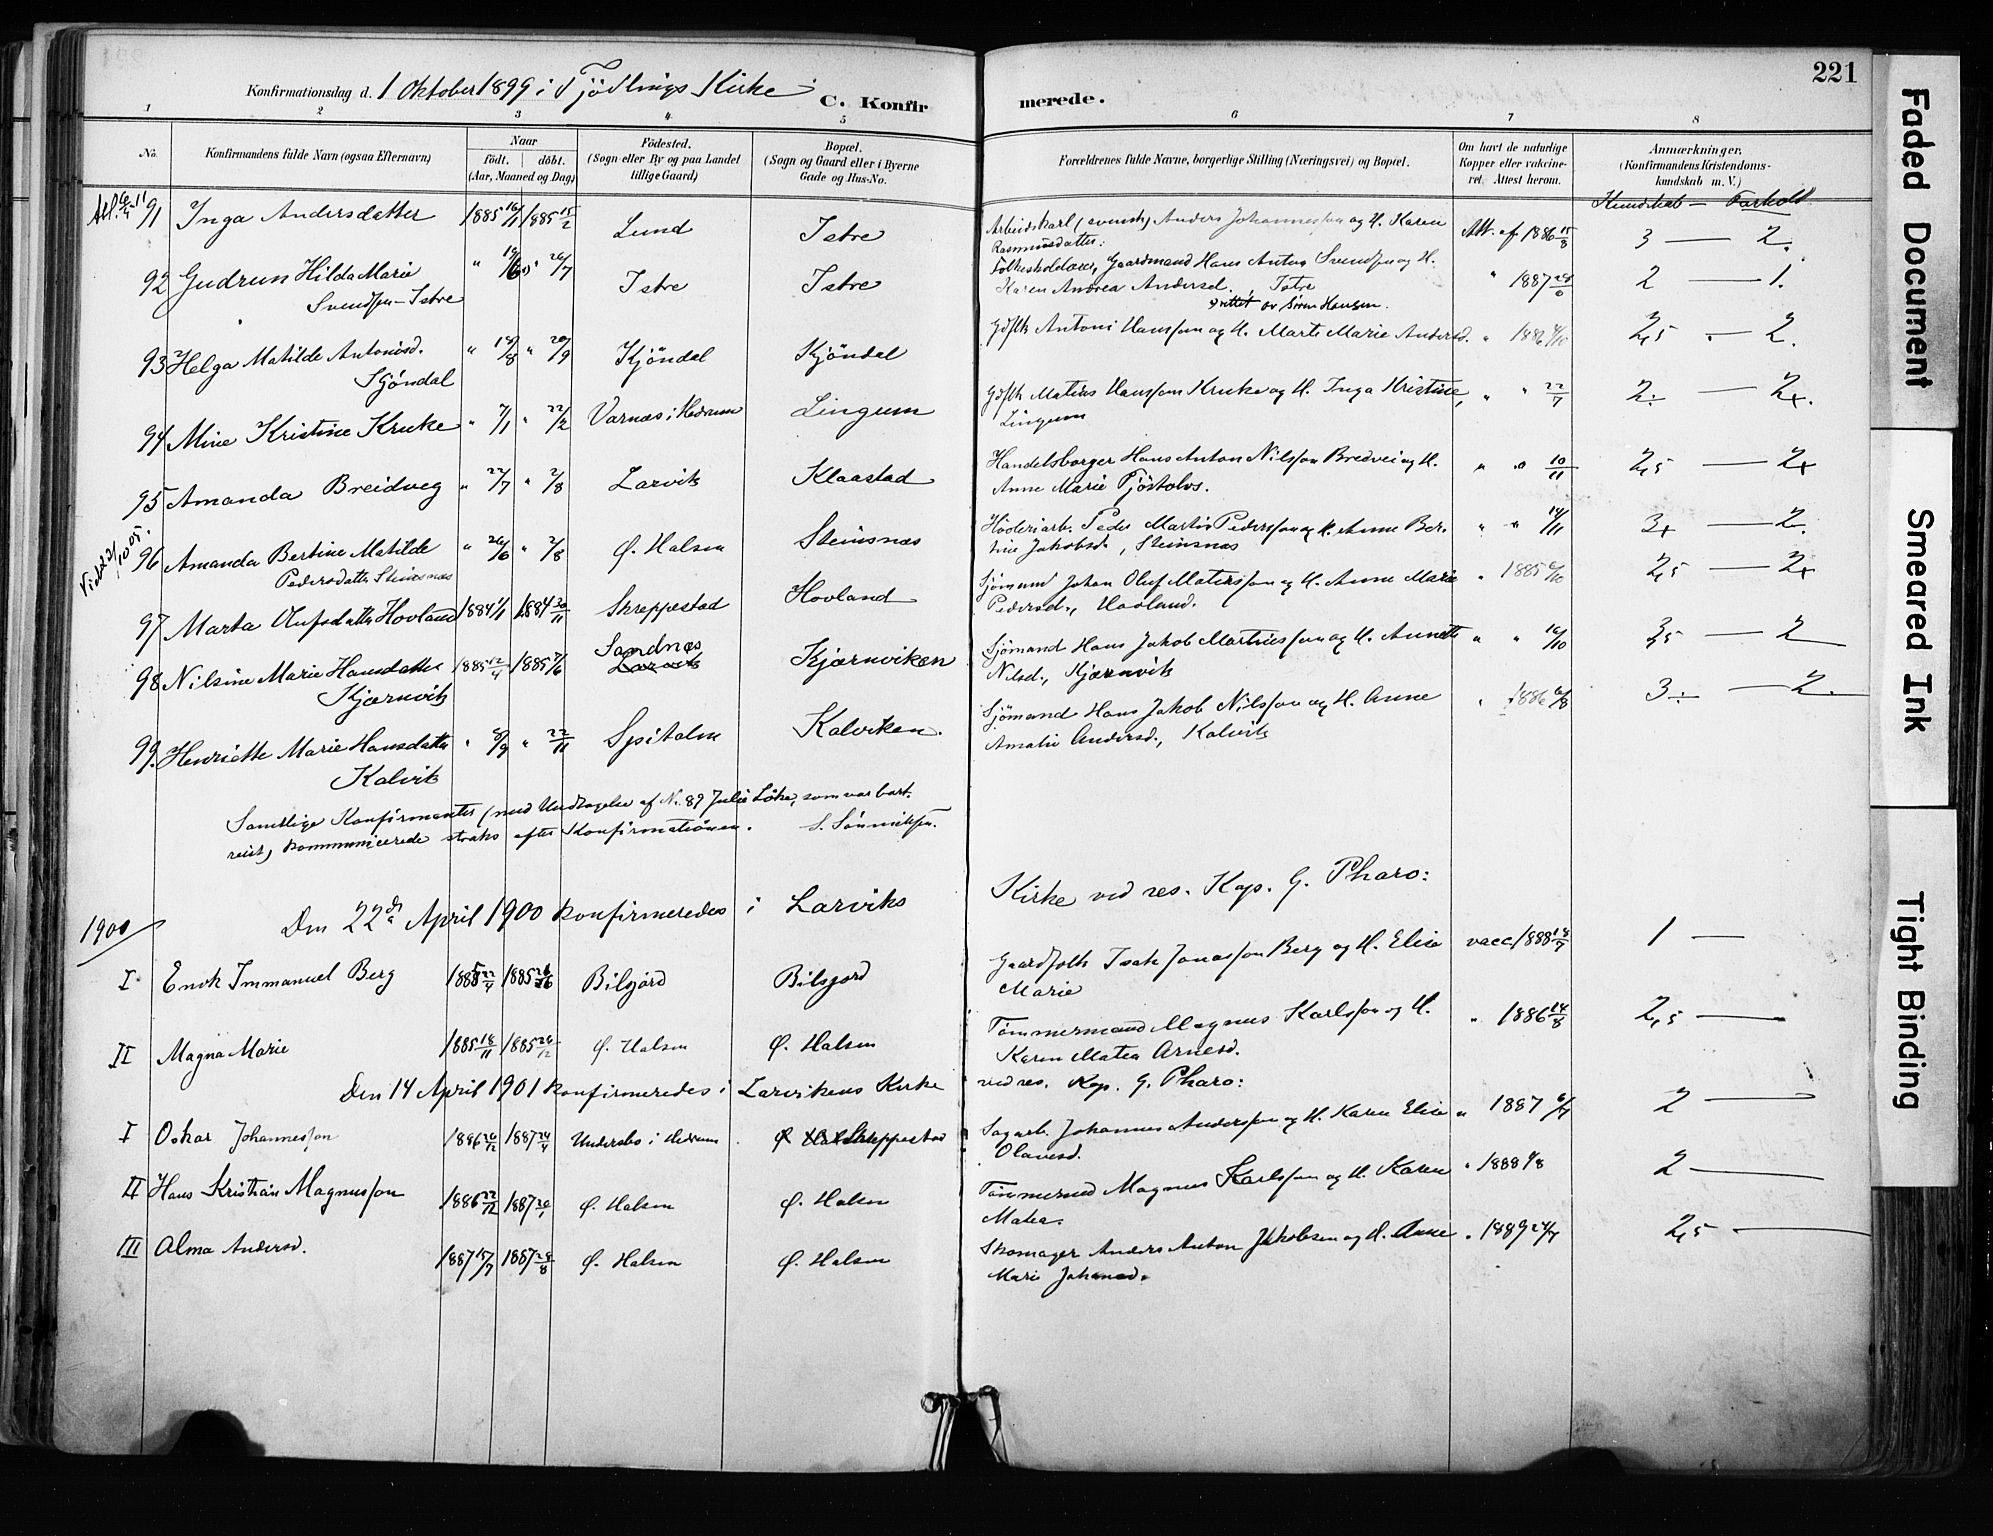 221
Konfirmationsdag d. 1 Oktober 1899 i Tjödlings Kirke
C. Konfirmerede.
1 2 3 4 5 6 7 8
No.
Konfirmandens fulde Navn (ogsaa Efternavn)
Naar
födt. döbt.
(Aar, Maaned og Dag)
Födested.
(Sogn eller By og paa Landet
tillige Gaard)
Bopæl.
(Sogn og Gaard eller i Byerne
Gade og Hus-No.
Forældrenes fulde Navne, borgerlige Stilling (Næringsvei) og Bopæl.
Om havt de naturlige
Kopper eller vakcine-
ret. Attest herom.
Anmærkninger.
(Konfirmandens Kristendoms-
kundskab m. V.)
Kundskab — Forhold
91 Inga Andersdatter 1885 16/11 1885 15/2 Lund Istre Arbeidskarl (svensk) Anders Johannesson og H. Karen Att. af 1886 15/8 3 — 2.
Rasmusdatter.
92 Gudrun Hilda Marie " " 26/7 Istre Istre Folkeskolelærer, Gaardmand Hans Anton Svendsen og H. " 1887 2 — 1.
Svendsen-Istre Karen Andrea Andersd. Istre
rettet av Sören Hansen.
93 Helga Matilde Antonisd. " 18/8 " 20/9 Kjöndal Kjöndal Gdflk Antoni Hanssen og H. Marte Marie Andersd. " 1886 2,5 — 2.
Kjöndal
94 Mine Kristine Kruke " 7/1 " 22/2 Varnæs i Hedrum Lingum Gdflk Matias Hanssen Kruke og H. Inga Kristine, " " 22/7 2 — 2
Lingum
95 Amanda Breidveg " 22/7 " 2/8 Larvik Klaastad Handelsborger Hans Anton Nilssen Bredvei og H. " " 10/11 2,5 — 2
Anne Marie Tjöstolvs.
96 Amanda Bertine Matilde " 26/6 " 2/8 Ø. Halsen Steinsnæs Höveriarb. Peder Martin Pederssen og H. Anne Ber- " " 14/11 3 — 2.
Pedersdatter Steinsnæs tine Jakobsd., Steinsnæs
97 Marta Olufsdatter Hovland 1884 1/11 1884 30/11 Skreppestad Hovland Sjömand Johan Oluf Matessen og H. Anne Marie " 1885 6/10 2,5 — 2
Pedersd., Hovland.
98 Nilsine Marie Hansdatter 1885 12/4 1885 7/6 Sandnæs Kjærnviken Sjömand Hans Jakob Martinssen og H. Anette " " 16/10 3,5 — 2
Larvik
Kjærnvik Nilsd., Kjærnvik
99. Henriette Marie Hansdatter " 8/9 " 22/11 Spitalen Kalviken. Sjömand Hans Jakob Nilssen og H. Anne " 1886 6/8 3 — 2.
Kalvik Amalie Andersd., Kalvik
Samtlige Konfirmanter (med Undtagelse af N. 87 Julie Löke, som var bort-
reist) kommunicerede straks efter Konfirmationen. S. Sönniksen.
1900
Den 22de April 1900 konfirmeredes i Larviks Kirke ved res. Kap. G. Pharo:
I Enok Immanuel Berg 1885 22/4 1885 Bilsjord Bilsjord Gaardfolk Isak Jonassen Berg og H. Elise vacc. 1888 18/7 1 —
Marie
II Magna Marie 1885 18/11 1885 26/12 Ø. Halsen Ø. Halsen Tömmermand Magnus Karlssen og H. " 1886 14/8 2,5 —
Karen Matea Arnesd.
Den 14 April 1901 konfirmeredes i Larvikens Kirke ved res. Kap. G. Pharo:
I Oskar Johannessen 1886 26/12 1887 24/4 Undersbo i Hedrum Skreppestad Sagarb. Johannes Anderssen og H. Karen Elise " 1887 6/7 2 —
Olavesd.
II Hans Kristian Magnussen 1886 22/12 1887 Ø. Halsen Ø. Halsen Tömmermd Magnus Karlssen og H. Karen " 1888 1/8 2 —
Matea.
III Alma Andersd. 1887 15/7 1887 28/8 Ø. Halsen Ø. Halsen Skomager Anders Anton Jakobsen og H. Anne " 1889 24/7 2,5 —
Marie Johansd.
Faded Document
Smeared Ink
Tight Binding